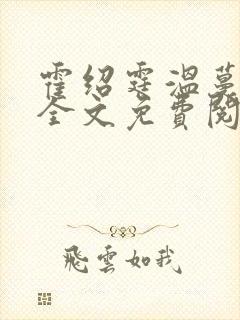 霍绍霆温蔓
全文免费阅
飛雲如我